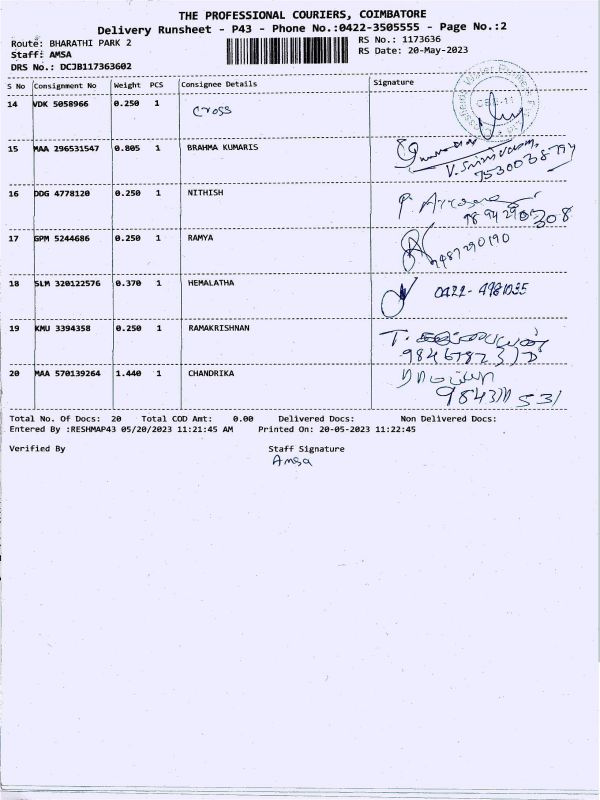 THE PROFESSIONAL COURIERS, COIMBATORE
Delivery Runsheet - P43 - Phone No.:0422-3505555 - Page No.:2
Route: BHARATHI PARK 2 RS No.: 1173636
Staff: AMSA RS Date: 20-May-2023
DRS No.: DCJB117363602
S No Consignment No Weight PCS Consignee Details Signature
14 VDK 5058966 0.250 1 Cross
15 MAA 296531547 0.805 1 BRAHMA KUMARIS
V. Srinivasan,
16 DDG 4778120 0.250 1 NITHISH
17 GPM 5244686 0.250 1 RAMYA
9487290190
18 SLM 320122576 0.370 1 HEMALATHA
19 KMU 3394358 0.250 1 RAMAKRISHNAN
20 MAA 570139264 1.440 1 CHANDRIKA
Total No. Of Docs: 20 Total COD Amt: 0.00 Delivered Docs: Non Delivered Docs:
Entered By :RESHMAP43 05/20/2023 11:21:45 AM Printed On: 20-05-2023 11:22:45
Verified By Staff Signature
Amsa